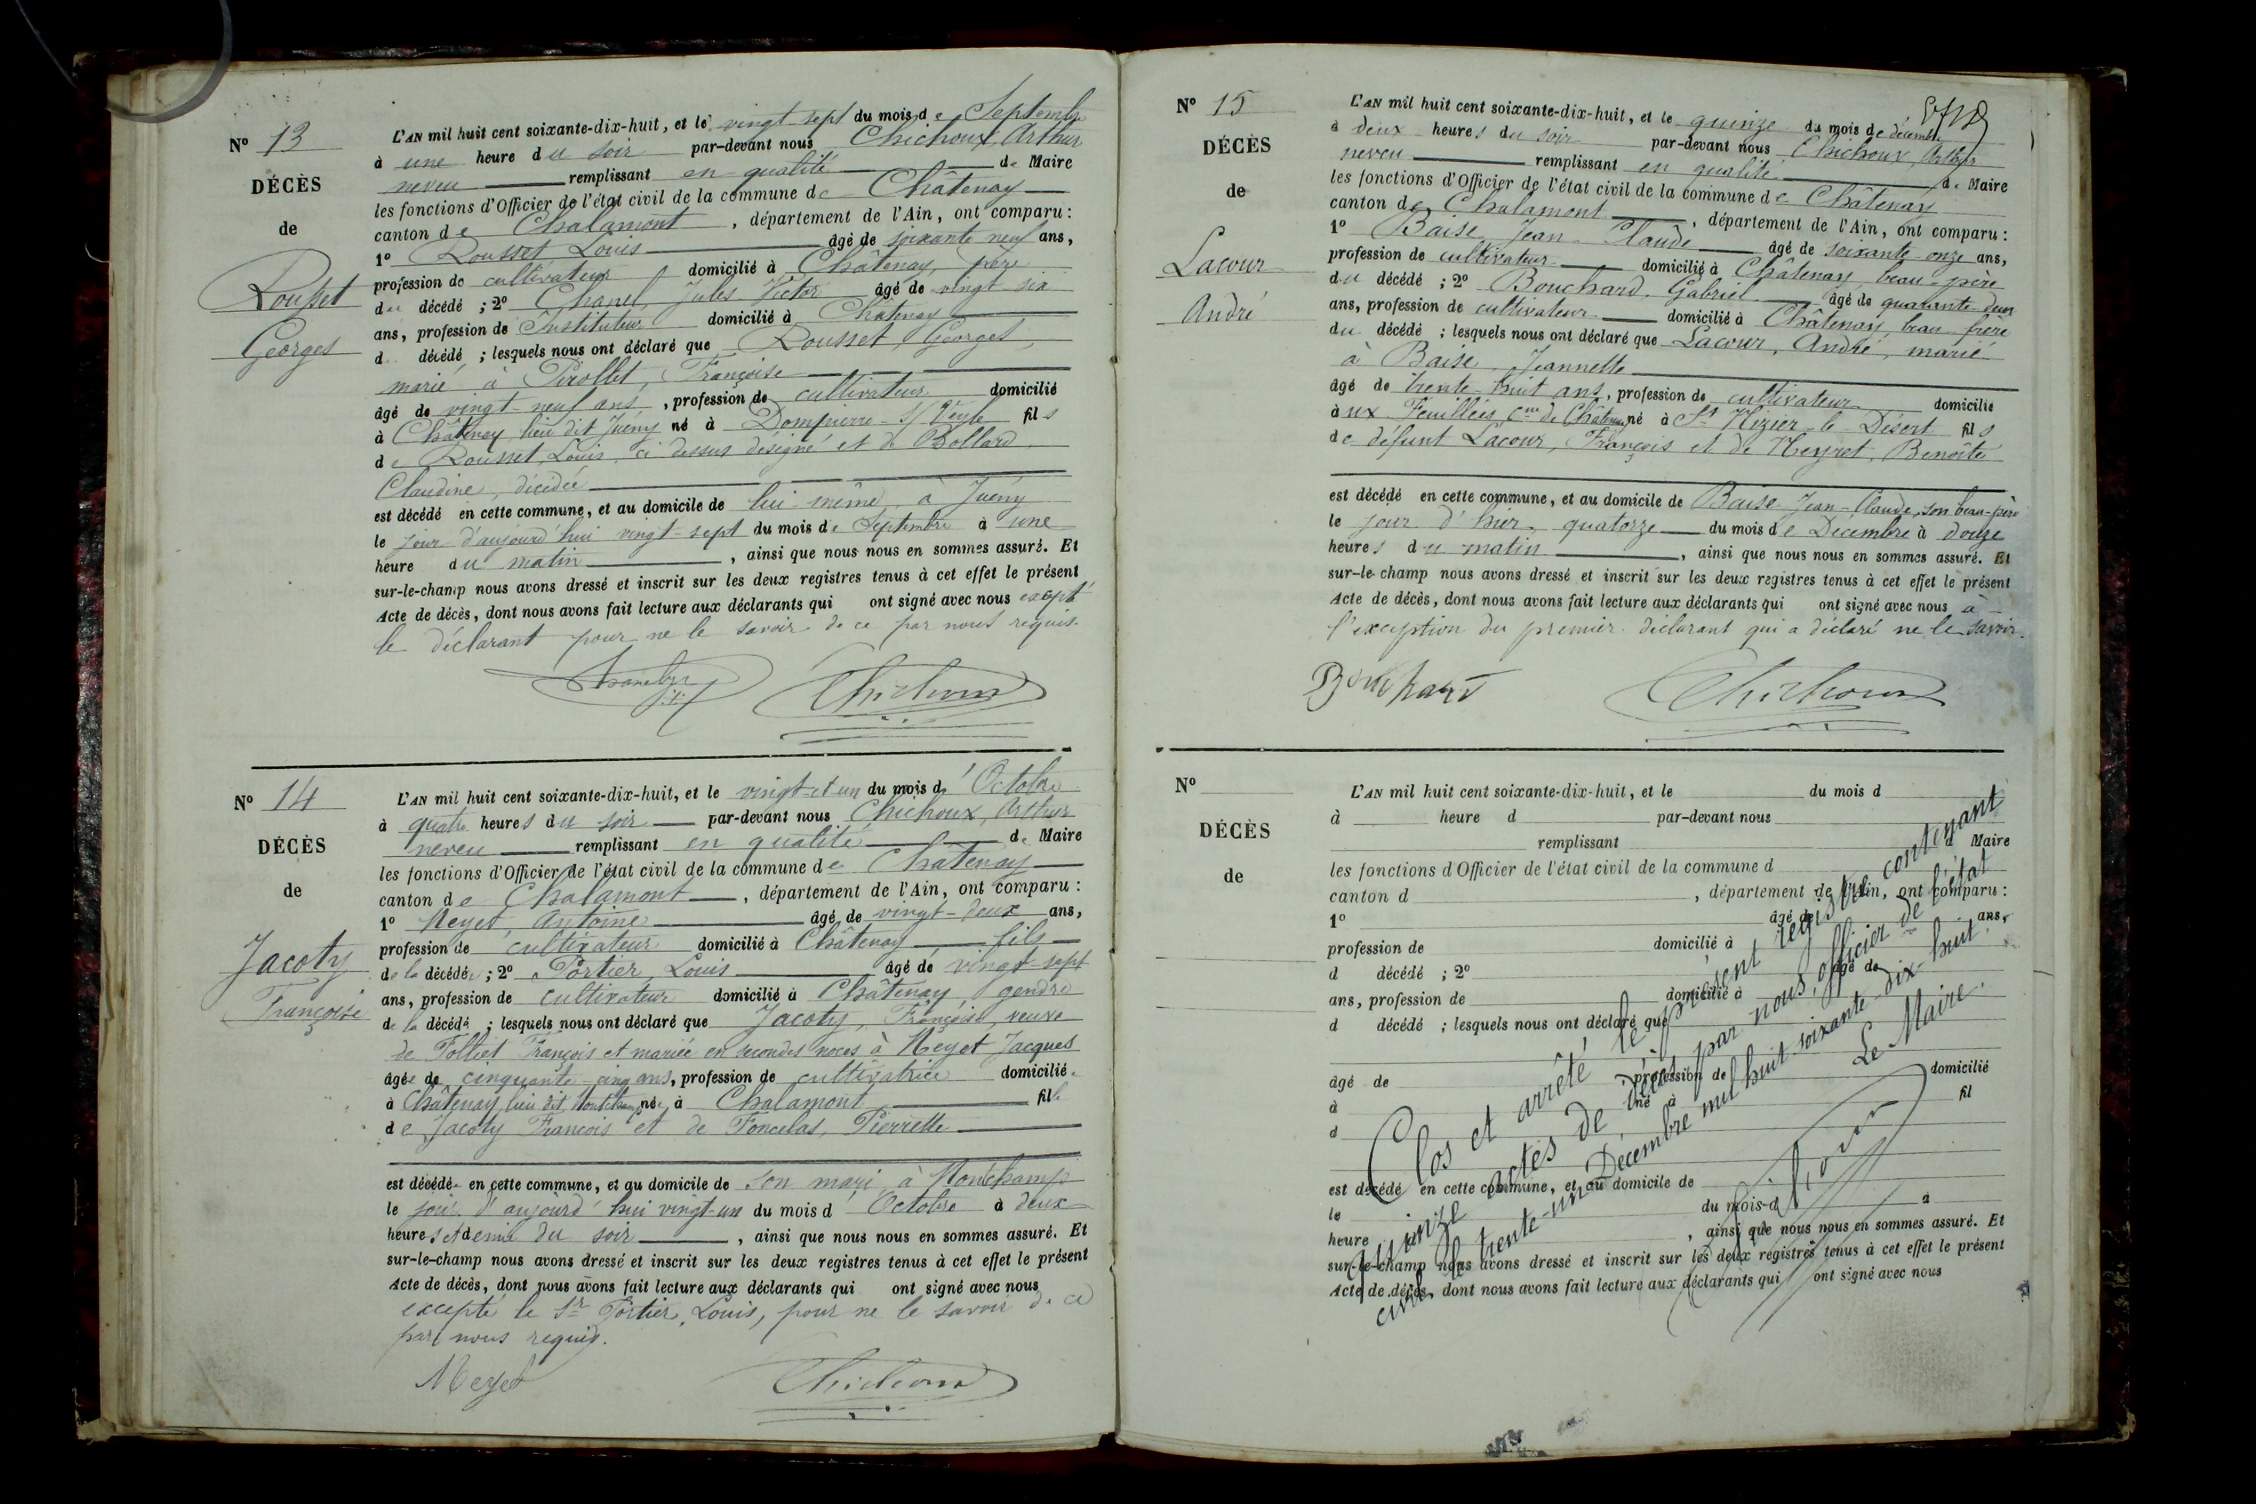 N° 13
DÉCÈS
de
Rousset
Georges
L'AN mil huit cent soixante-dix-huit, et le vingt-sept du mois de Septembre
à une heure du soir par-devant nous Chichoux, Arthur
neveu remplissant en qualité de Maire
les fonctions d'Officier de l'état civil de la commune de Châtenay
canton de Chalamont, département de l'Ain, ont comparu :
1° Rousset Louis âgé de soixante neuf ans,
profession de cultivateur domicilié à Châtenay, père
du décédé ; 2° Chanel, Jules Victor âgé de vingt six
ans, profession de Instituteur domicilié à Châtenay
d décédé ; lesquels nous ont déclaré que Rousset, Georges,
marié à Pirollet, Françoise
âgé de vingt-neuf ans, profession de cultivateur domicilié
à Châtenay, lieu dit Juény né à Dompierre s/ Veyle fils
de Rousset, Louis, ci dessus désigné et de Bollard
Claudine, décédée
est décédé en cette commune, et au domicile de lui-même, à Juény
le jour d'aujourd'hui vingt-sept du mois de Septembre à une
heure du matin, ainsi que nous nous en sommes assuré. Et
sur-le-champ nous avons dressé et inscrit sur les deux registres tenus à cet effet le présent
Acte de décès, dont nous avons fait lecture aux déclarants qui ont signé avec nous excepté
le déclarant pour ne le savoir de ce par nous requis.
Chichoux
N° 14
DÉCÈS
de
Jacoty
Françoise
L'AN mil huit cent soixante-dix-huit, et le vingt-et un du mois d'Octobre
à quatre heures du soir par-devant nous Chichoux, Arthur
neveu remplissant en qualité de Maire
les fonctions d'Officier de l'état civil de la commune de Châtenay
canton de Chalamont, département de l'Ain, ont comparu :
1° Neyet, Antoine âgé de vingt-deux ans,
profession de cultivateur domicilié à Châtenay, fils
de la décédée ; 2° Portier, Louis âgé de vingt-sept
ans, profession de cultivateur domicilié à Châtenay, gendre
de la décédé ; lesquels nous ont déclaré que Jacoty, Françoise, veuve
de Folliet François et mariée en secondes noces à Neyet Jacques
âgée de cinquante-cinq ans, profession de cultivatrice domiciliée
à Châtenay, lieu dit née à Chalamont fille
de Jacoty François et de Foncelas, Pierrette
est décédée en cette commune, et au domicile de son mari, à Montchamp
le jour d'aujourd'hui vingt-un du mois d'Octobre à deux
heures et demie du soir, ainsi que nous nous en sommes assuré. Et
sur-le-champ nous avons dressé et inscrit sur les deux registres tenus à cet effet le présent
Acte de décès, dont nous avons fait lecture aux déclarants qui ont signé avec nous
excepté le Sr Portier, Louis, pour ne le savoir de ce
par nous requis.
Neyet Chichoux
N° 15
DÉCÈS
de
Lacour
André
L'AN mil huit cent soixante-dix-huit, et le quinze du mois de décembre
à deux heures du soir par-devant nous Chichoux, Arthur
neveu remplissant en qualité de Maire
les fonctions d'Officier de l'état civil de la commune de Châtenay
canton de Chalamont, département de l'Ain, ont comparu :
1° Baise, Jean-Claude âgé de soixante-onze ans,
profession de cultivateur domicilié à Châtenay, beau-père
du décédé ; 2° Bouchard, Gabriel âgé de quarante-deux
ans, profession de cultivateur domicilié à Châtenay, beau frère
du décédé ; lesquels nous ont déclaré que Lacour, André, marié
à Baise, Jeannette
âgé de trente-huit ans, profession de cultivateur domicilié
aux Feuillées Cne de Châtenay né à St Nizier-le-Désert fils
de défunt Lacour, François et de Neyret, Benoîte
est décédé en cette commune, et au domicile de Baise Jean-Claude, son beau-père
le jour d'hier, quatorze du mois de Décembre à douze
heures du matin, ainsi que nous nous en sommes assuré. Et
sur-le-champ nous avons dressé et inscrit sur les deux registres tenus à cet effet le présent
Acte de décès, dont nous avons fait lecture aux déclarants qui ont signé avec nous à
l'exception du premier déclarant qui a déclaré ne le savoir.
Bouchard Chichoux
N°
DÉCÈS
de
L'AN mil huit cent soixante-dix-huit, et le du mois d
à heure d par-devant nous
remplissant d Maire
les fonctions d'Officier de l'état civil de la commune d
canton d, département de l'Ain, ont comparu :
1° âgé de ans,
profession de domicilié à
d décédé ; 2° âgé de
ans, profession de domicilié à
d décédé ; lesquels nous ont déclaré que
âgé de, profession de domicilié
à né à fil
d
est décédé en cette commune, et au domicile de
le du mois d à
heure, ainsi que nous nous en sommes assuré. Et
sur-le-champ nous avons dressé et inscrit sur les deux registres tenus à cet effet le présent
Acte de décès, dont nous avons fait lecture aux déclarants qui ont signé avec nous
Clos et arrêté le présent registre contenant
quinze actes de décès par nous, officier de l'état
civil le trente-un Décembre mil huit soixante-dix-huit.
Le Maire.